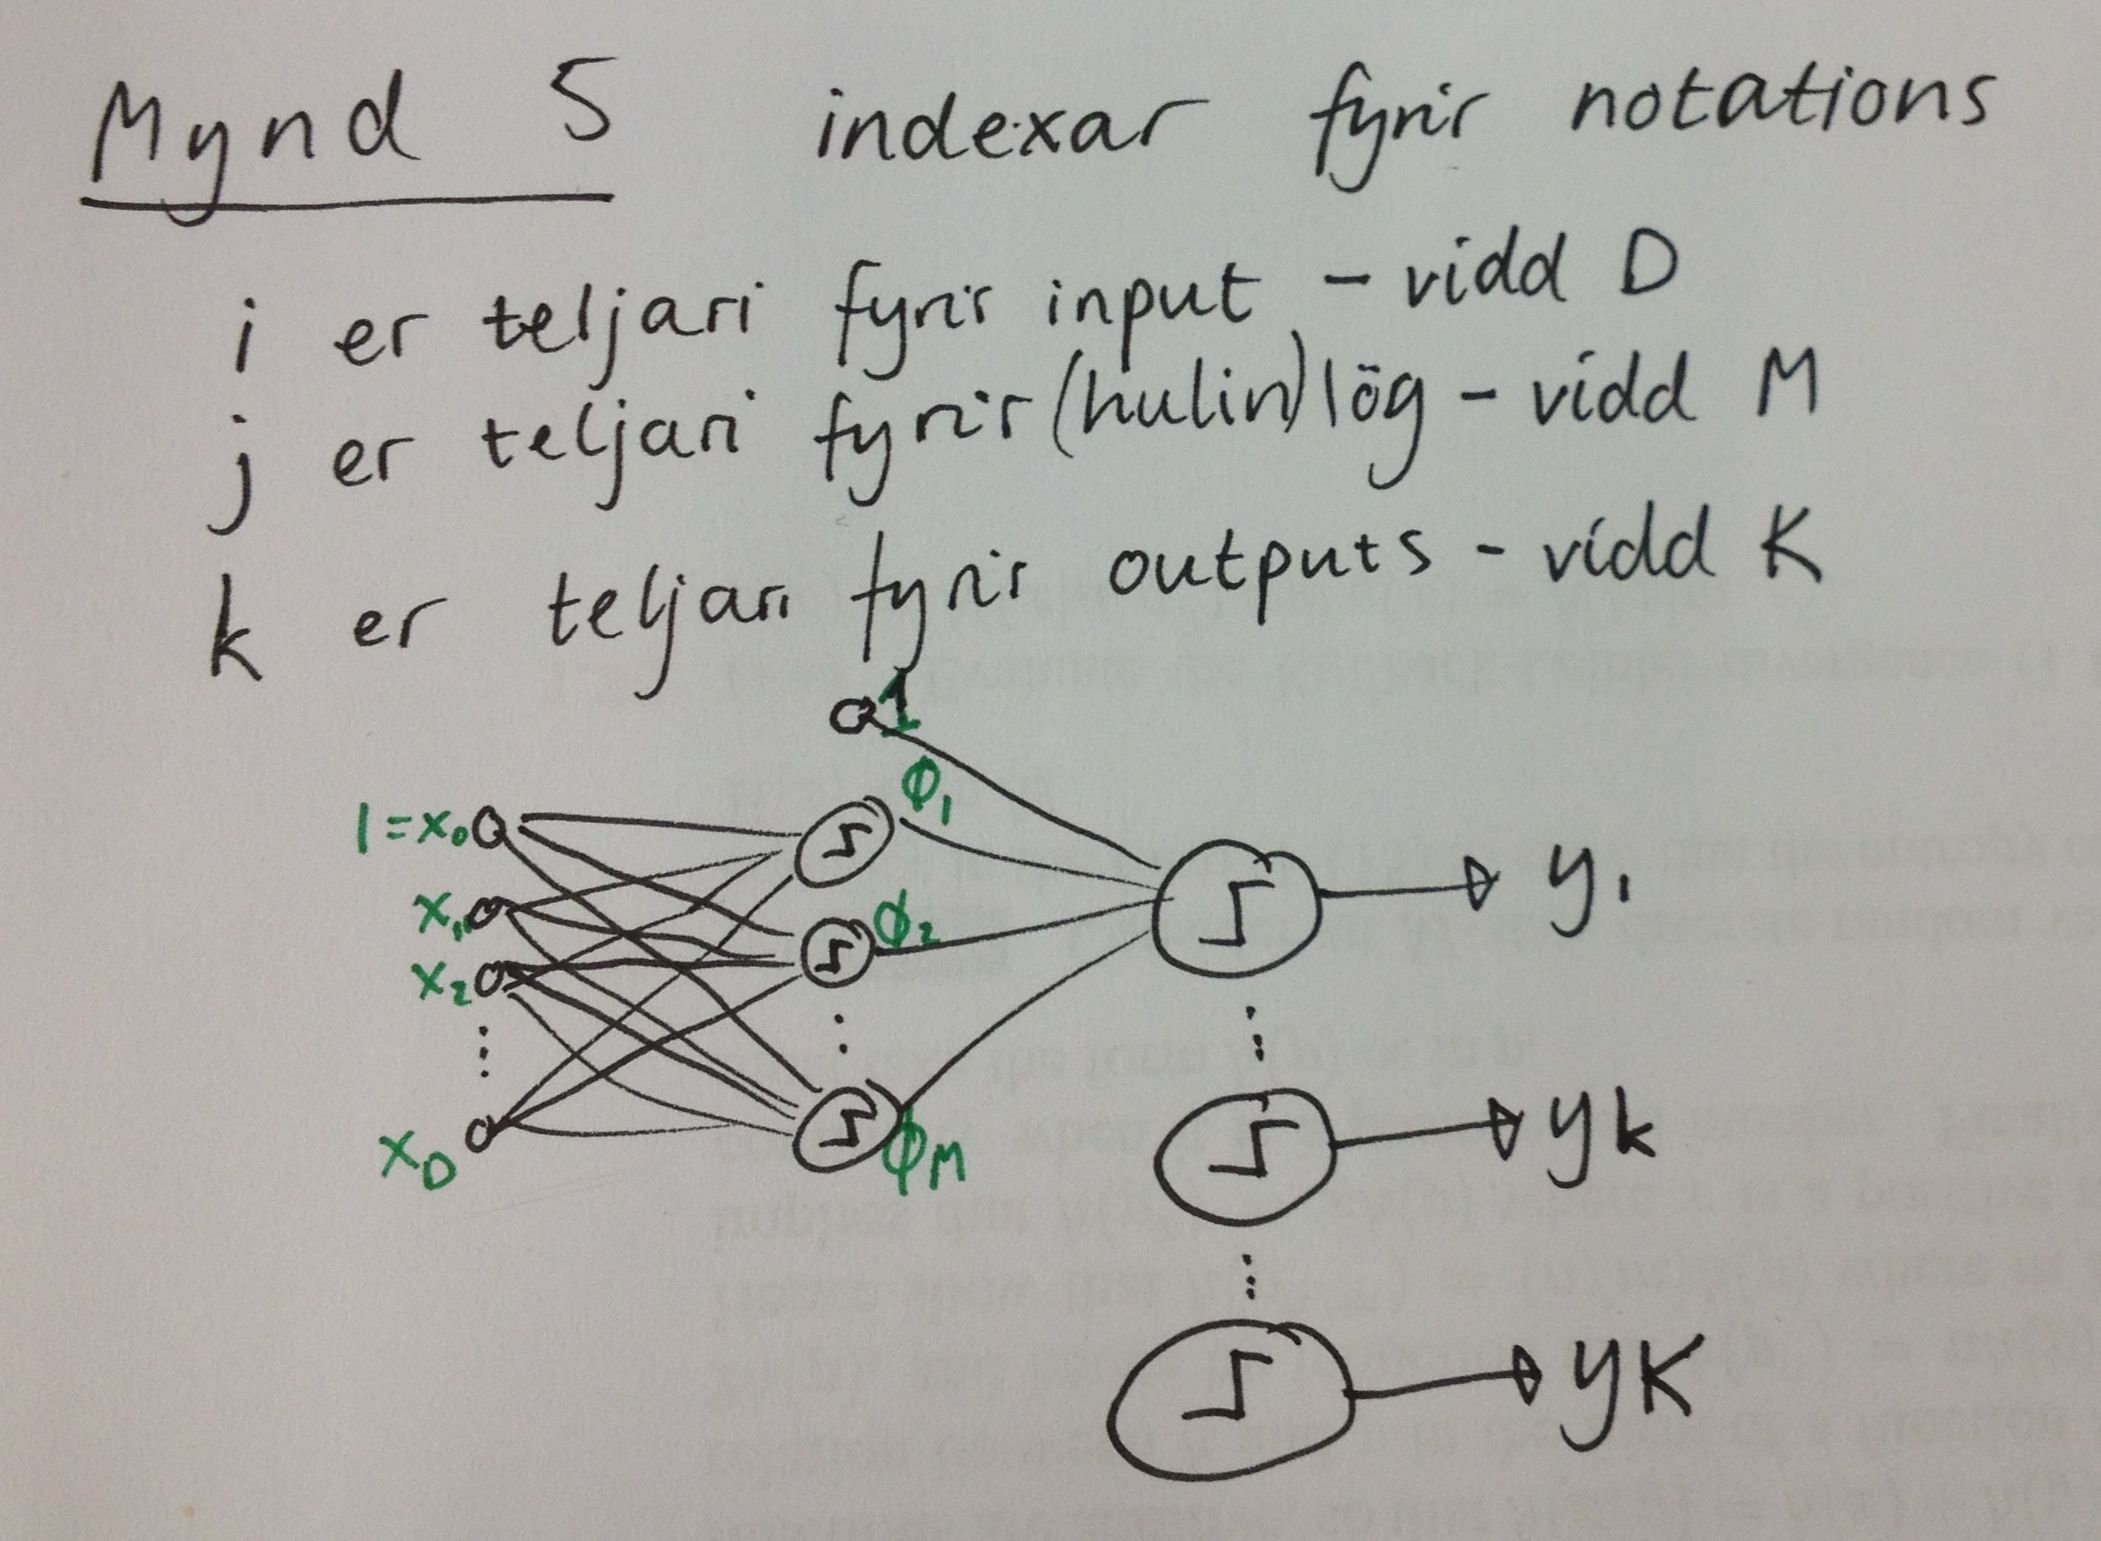 Mynd 5 indexar fyrir notations
i er teljari fyrir input - vídd D
j er teljari fyrir (hulin) lög - vídd M
k er teljari fyrir outputs - vídd K
1
ϕ₁
1=x₀
y₁
x₁
ϕ₂
x₂
yk
x_D
ϕ_M
yK